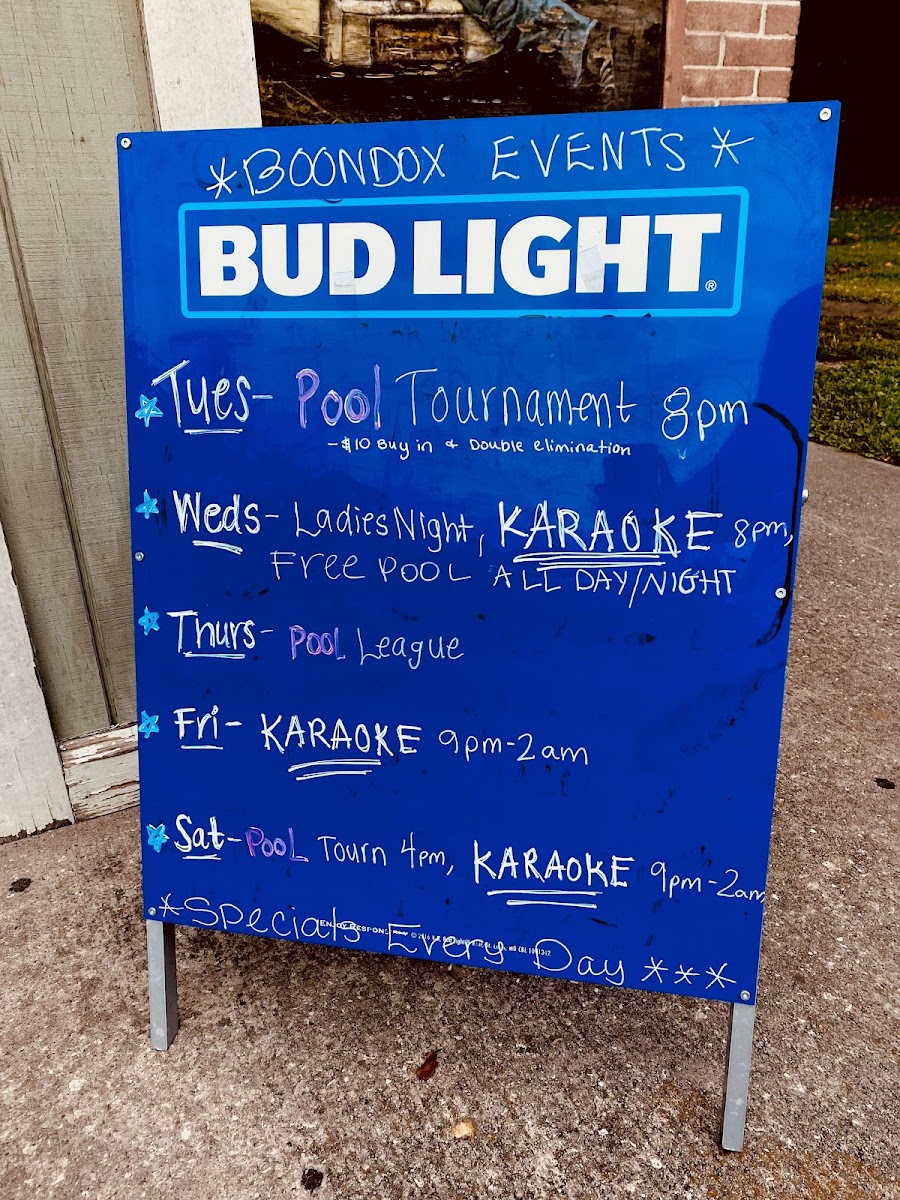 *BOONDOX EVENTS*
BUD LIGHT®
Tues- Pool Tournament 8pm
-$10 Buy in & Double elimination
Weds- Ladies Night, KARAOKE 8pm,
FREE POOL ALL DAY/NIGHT
Thurs- POOL League
Fri- KARAOKE 9pm-2am
Sat- POOL Tourn 4pm, KARAOKE 9pm-2am
*Specials Every Day ***
ENJOY RESPONSIBLY © 2016